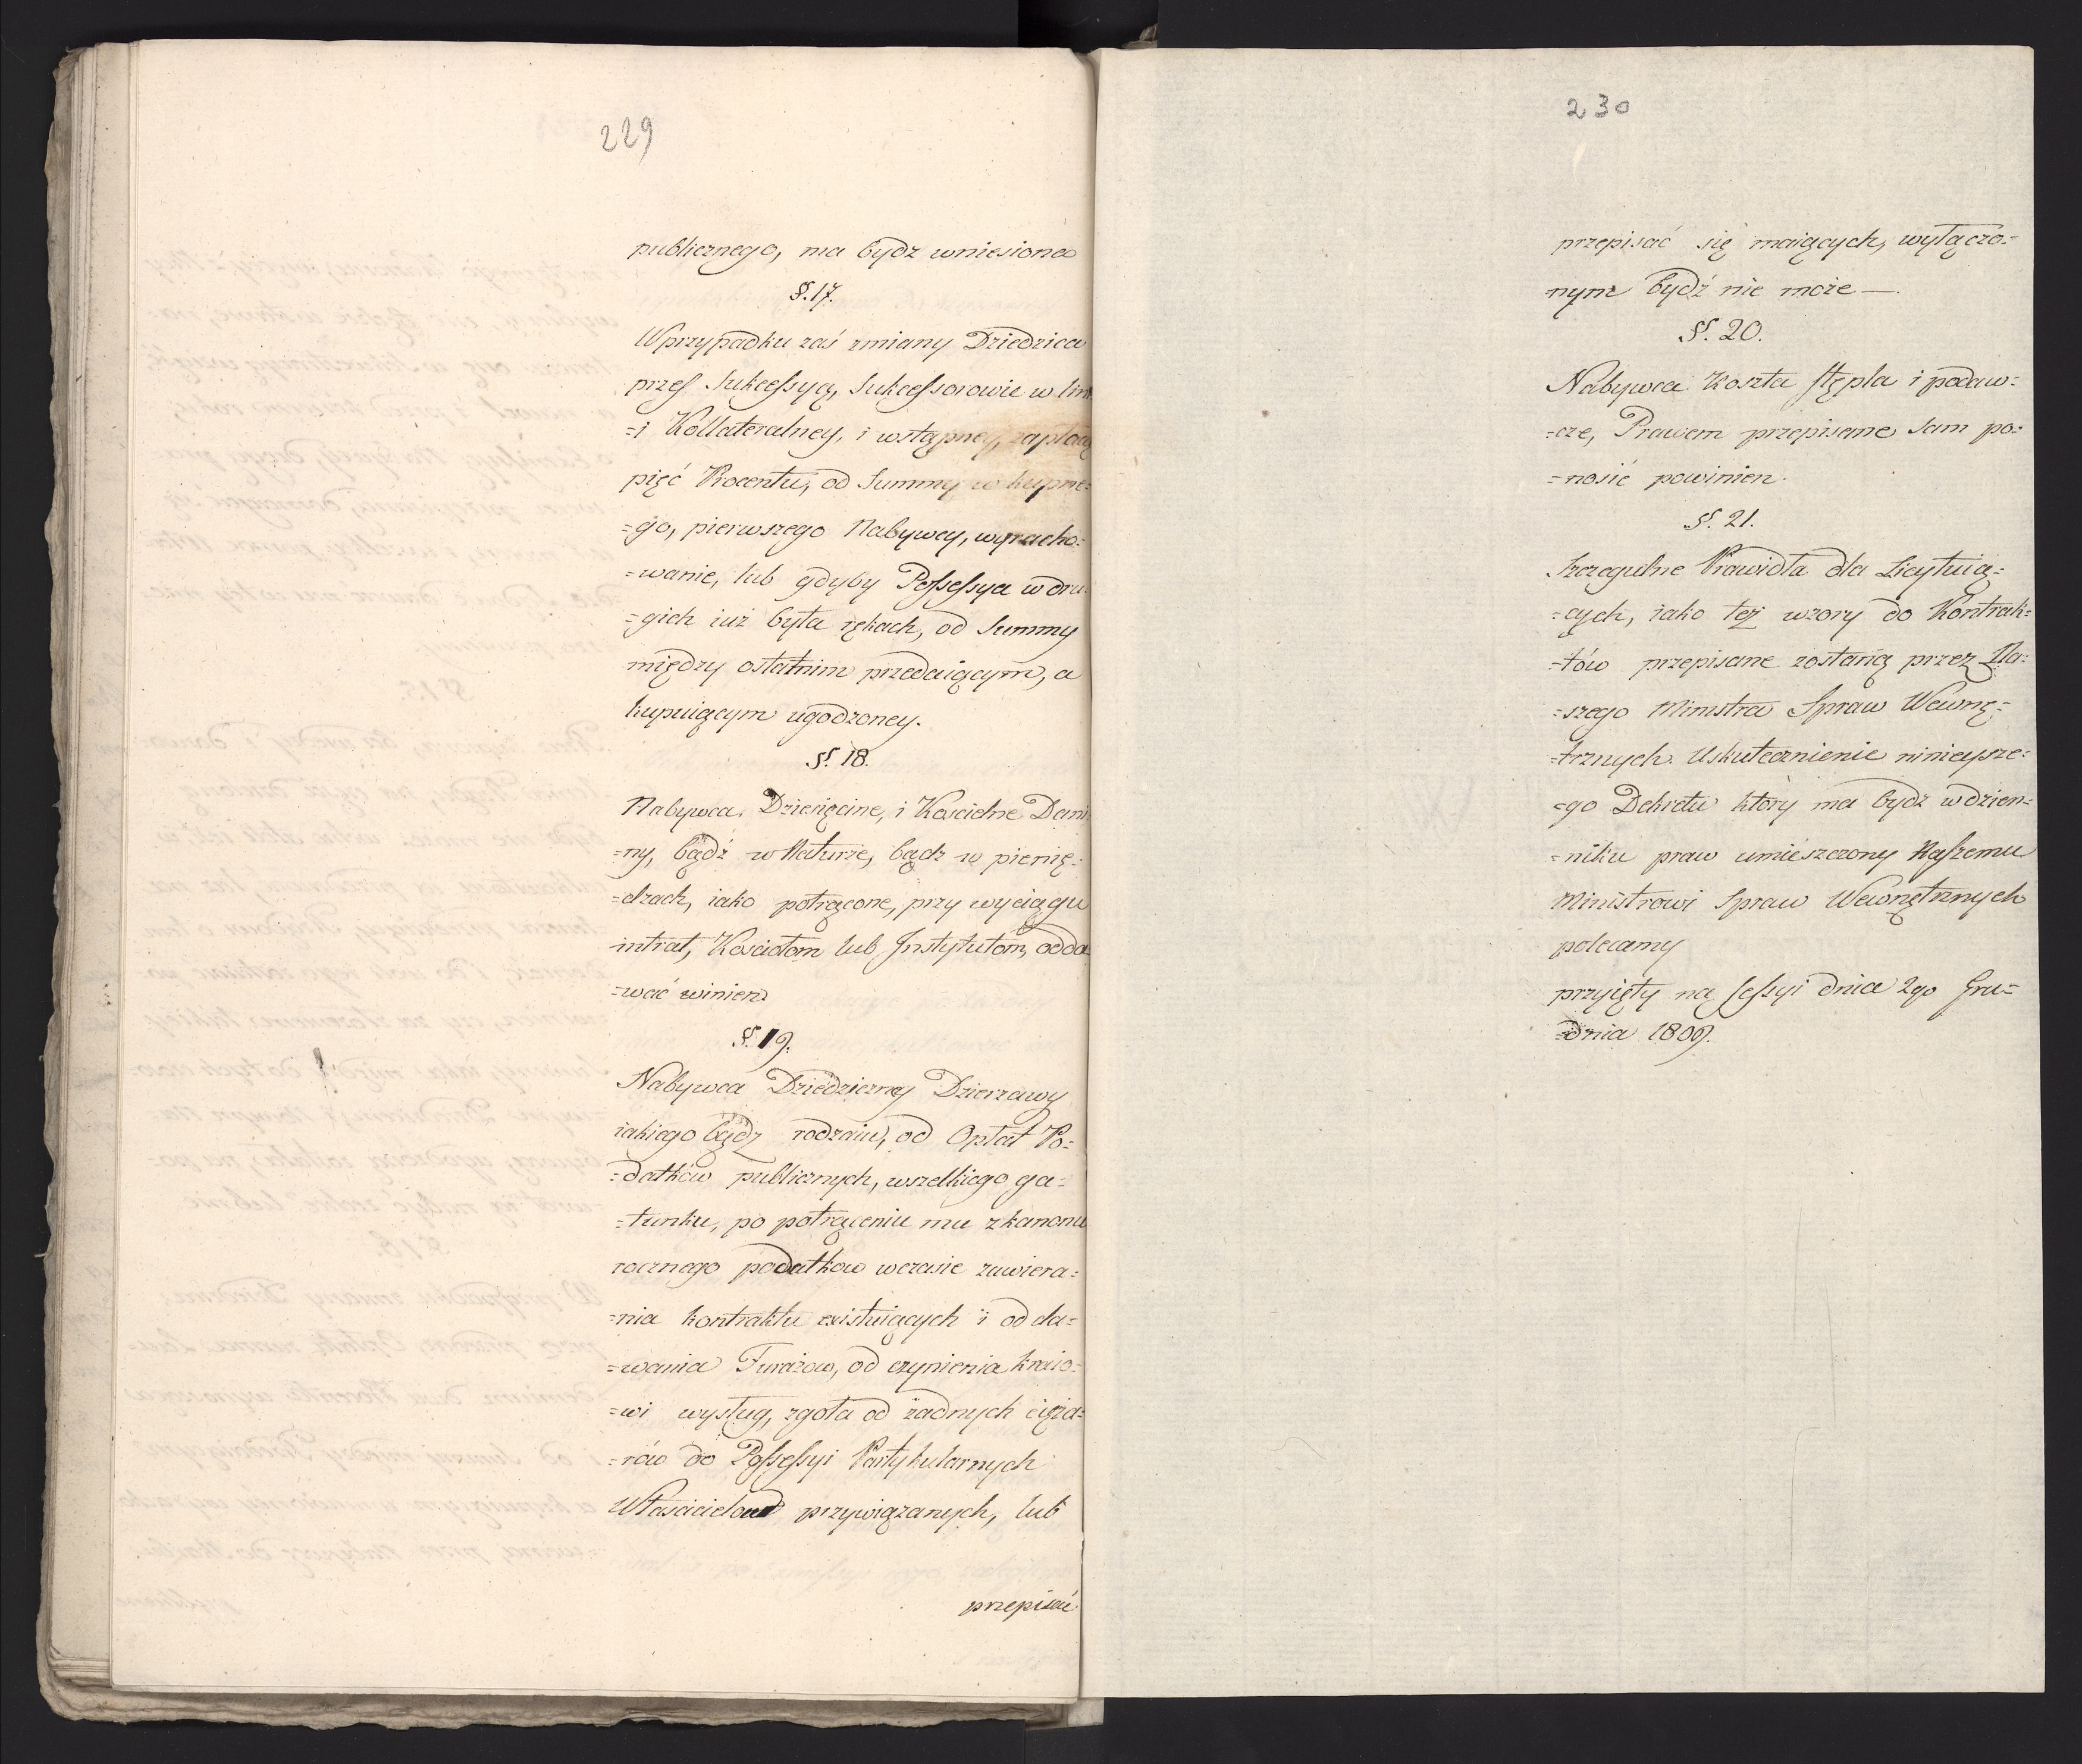 229
publicznego, ma bydz wniesiona
§. 17.
W przypadku zaś zmiany Dziedzica
przeſ Sukceſsyą, Sukceſsorowie w lin
=i Kollateralney, i wstąpney, zapłacą
pięć Procentu, od Summy w kupne=
=go, pierwszego Nabywcy, wyracho=
=wanie, lub gdyby Poſseſsya w dru=
=gich iuż była rękach, od Summy
między ostatnim przedaiącym, a
kupuiącym ugodzoney.
§. 18.
Nabywca, Dziesięcine, i Kościelne Dani=
=ny, bądź w Naturze, bądz w pienię=
=dzach, iako potrącone, przy wyciągu
intrat, Kościołom lub Jnstytutom, odda=
=wać winien
§. 19.
Nabywca Dziedziczney Dzierzawy
iakiego bądz rodzaiu, od Opłat Po=
=datków publicznych, wszelkiego ga=
=tunku, po potrąceniu mu z kanonu
rocznego podatkow w czasie zawiera=
=nia kontraktu existuiących i od da=
=wania Furażow, od czynienia kraio=
=wi wysług, zgoła od żadnych cięża=
=rów do Poſseſsyi Partykularnych
Właścicielow przywiązanych, lub
przepisać
230
przepisać się maiących, wyłączo=
=nym bydź nie może —.
§. 20.
Nabywca Koszta stępla i podaw=
=cze, Prawem przepisane sam po=
=nosić powinien.
§. 21.
Szczegulne Prawidła dla Licytuią=
=cych, iako też wzory do Kontrak=
=tów przepisane zostaną przez Na=
=szego Ministra Spraw Wewnę=
=trznych. Uskutecznienie ninieysze=
=go Dekretu który ma bydz w dzien=
=niku praw umieszczony Naſzemu
Ministrowi Spraw Wewnętrznych
polecamy
przyięty na Seſsyi dnia 2go Gru=
=dnia 1809.